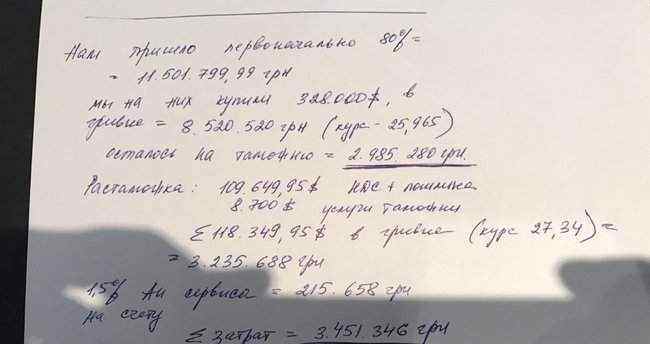 Нам пришло первоначально 80% =
= 11.501.799,99 грн
мы на них купили 328.000$, в
гривне = 8.520.520 грн (курс - 25,965)
осталось на таможню = 2.985.280 грн.
Растаможка: 109.649,95$ НДС + пошлина
8.700$ услуги таможни
Σ 118.349,95$ в гривне (курс 27,34) =
= 3.235.688 грн
1,5% Ай сервисы = 215.658 грн
на счету
Σ затрат = 3.451.346 грн